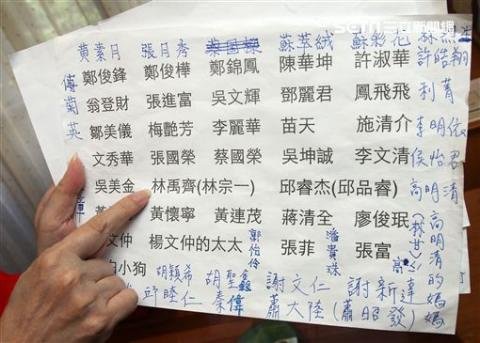 三立新聞網
黃葉月 張月秀 蘇萃絨 蘇彩花
傅菊英
鄭俊鋒 鄭俊樺 鄭錦鳳 陳華坤 許淑華 許皓翔
翁登財 張進富 吳文輝 鄧麗君 鳳飛飛 利菁
鄒美儀 梅艷芳 李麗華 苗天 施清介 李明依
文秀華 張國榮 蔡國榮 吳坤誠 李文清 侯怡君
吳美金 林禹齊(林宗一) 邱睿杰(邱品睿) 高明清
黃懷寧 黃連茂 蔣清全 廖俊珉 高明清的媽媽
文仲 楊文仲的太太 郭怡伶 張菲 潘貴珠 張富
小狗 胡穎希 胡聖鑫 謝文仁 謝新達
邱睦仁 秦偉 蕭大陸 (蕭昭發)